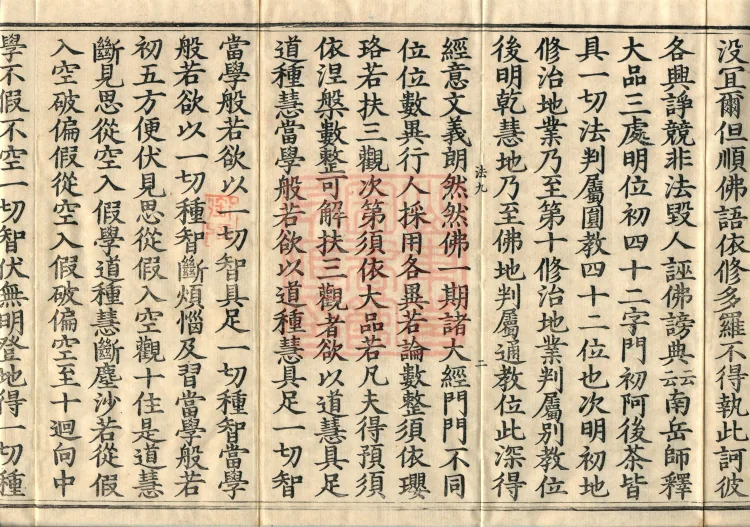 没宜爾但順佛語依修多羅不得執此訶彼
各興諍競非法毀人誣佛謗典云云南岳師釋
大品三處明位初四十二字門初阿後茶皆
具一切法判屬圓教四十二位也次明初地
修治地業乃至第十修治地業判屬別教位
後明乾慧地乃至佛地判屬通教位此深得
法九
二
經意文義朗然然佛一期諸大經門門不同
位位數異行人採用各異若論數整須依瓔
珞若扶三觀次第須依大品若凡夫得預須
依涅槃數整可解扶三觀者欲以道慧具足
道種慧當學般若欲以道種慧具足一切智
當學般若欲以一切智具足一切種智當學
般若欲以一切種智斷煩惱及習當學般若
初五方便伏見思從假入空觀十住是道慧
斷見思從空入假學道種慧斷塵沙若從假
入空破偏假從空入假破偏空至十迴向中
學不假不空一切智伏無明登地得一切種